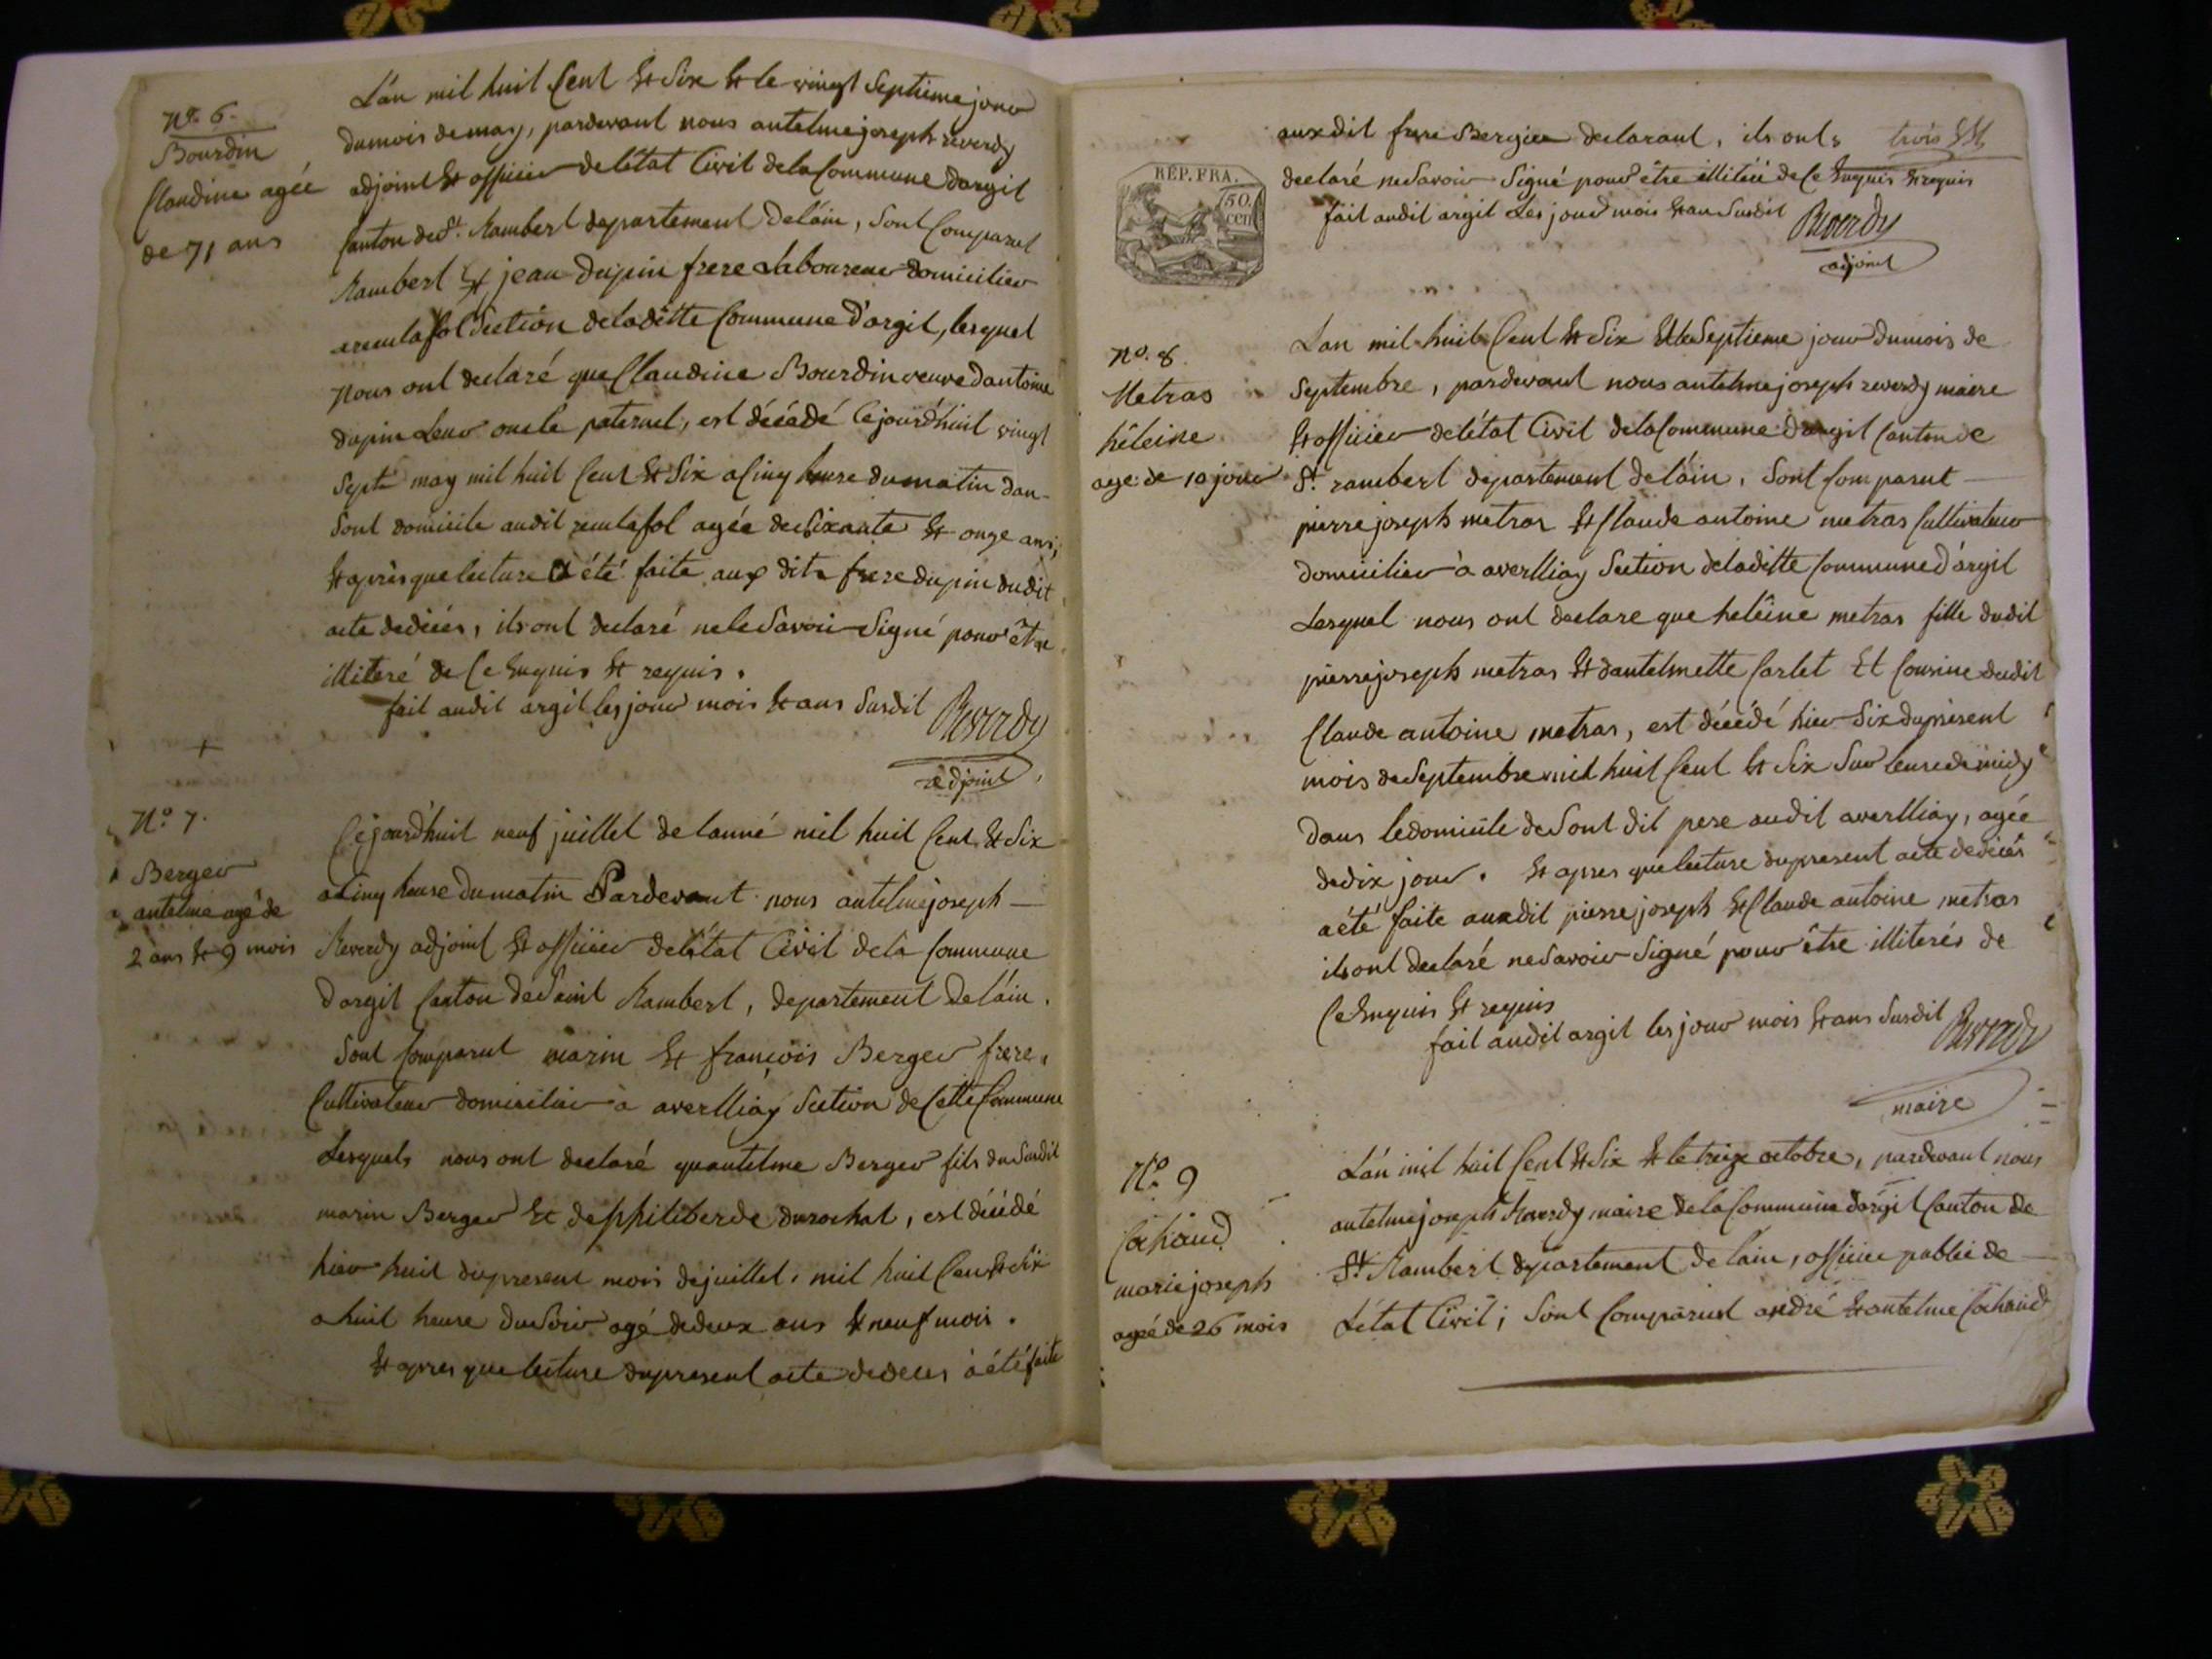 N.o 6.
Bourdin
Claudine agée
de 71 ans
L'an mil huit Cent Et Six Et le vingt Septieme jour
du mois de may, pardevant nous antelme joseph reverdy
adjoint Et officier de l'état Civil de la Commune dargit
Canton de St. Rambert departement de lain, Sont Comparut
Rambert Et jean dupin frere Laboureur domicilier
a reculafol Section de laditte Commune d'argit, lesquel
nous ont declaré que Claudine Bourdin veuve dantoine
dupin Leur oncle paternel, est décédé Cejourdhuit vingt
Sept may mil huit Cent Et Six a Cinq heure du matin dan
Sont domicile audit reculafol agée de Soixante Et onze ans;
Et après que lecture a été faite aux dits frere dupin dudit
acte de décés, ils ont declaré ne le Savoir Signé pour être
illiteré de Ce Enquis Et requis.
fait audit argit les jour mois Et ans Susdit Reverdy
adjoint
N.o 7.
Berger
antelme agé de
2 ans Et 9 mois
Cejourdhuit neuf juillet de lanné mil huit Cent Et Six
a Cinq heure du matin Pardevant nous antelme joseph
Reverdy adjoint Et officier de létat Civil de la Commune
dargit Canton de Saint Rambert, departement de láin.
Sont Comparut marin Et françois Berger frere,
Cultivateur domicilier à averlliay Section de Cette Commune
Lesquels nous ont declaré quantelme Berger fils du Susdit
marin Berger Et de philiberde durochat, est décédé
hier huit du present mois de juillet, mil huit Cent Et Six
a huit heure du Soir agé de deux ans Et neuf mois.
Et apres que lecture du present acte de deces à été faite
RÉP. FRA.
50.
cen
auxdit frere Berger declarant, ils ont trois
declaré ne Savoir Signé pour être illiteré de Ce Enquis Et requis
fait audit argit Les jour mois Et an Susdit Reverdy
adjoint
N.o 8.
Metras
héleine
age de 10 jour
Lan mil huit Cent Et Six Et le Septieme jour du mois de
Septembre, pardevant nous antelme joseph reverdy maire
Et officier de létat Civil de la Commune d'argit Canton de
St. rambert departement de láin, Sont Comparut
pierre joseph metras Et Claude antoine metras Cultivateur
domicilier à averlliay Section de laditte Commune d'argit
Lesquel nous ont declare que heléine metras fille dudit
pierre joseph metras Et dantelmette Carlet Et Cousine dudit
Claude antoine metras, est décédé hier Six du présent
mois de Septembre mil huit Cent Et Six Sur leure de midy
dans le domicile de Sont dit pere audit averlliay, agée
de dix jour. Et apres que lecture du present acte de deces
a été faite auxdit pierre joseph Et Claude antoine metras
ils ont declaré ne Savoir Signé pour être illiterés de
Ce Enquis Et requis
fait audit argit les jour mois Et ans Susdit Reverdy
maire
N.o 9
Cochaud
marie joseph
ageé de 26 mois
L'án mil huit Cent Et Six Et le treize octobre, pardevant nous
antelme joseph Reverdy maire de la Commune dargit Canton de
St. Rambert departement de lain, officier public de
L'état Civil; Sont Comparut andré Et antelme Cochaud